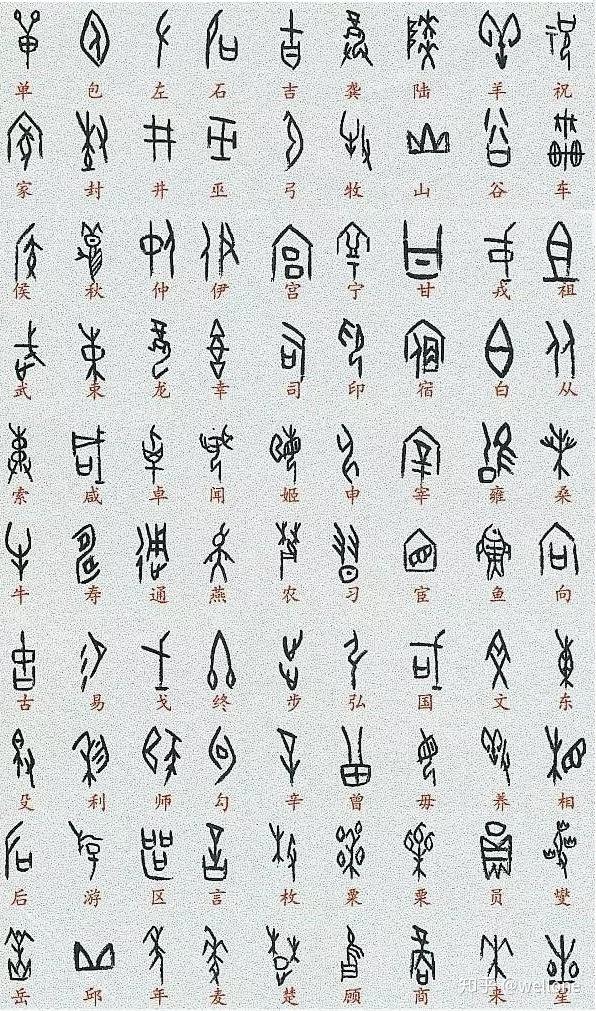 单 包 左 石 吉 龚 陆 羊 祝
家 封 井 巫 弓 牧 山 谷 车
侯 秋 仲 伊 宫 宁 甘 戎 祖
武 束 龙 幸 司 印 宿 白 从
索 咸 卓 闻 姬 申 宰 雍 桑
牛 寿 通 燕 农 习 宦 鱼 向
古 易 戈 终 步 弘 国 文 东
殳 利 师 勾 辛 曾 毋 养 相
后 游 区 言 枚 粟 栗 员 燮
岳 邱 年 麦 楚 顾 商 来 星
知乎 @wellone